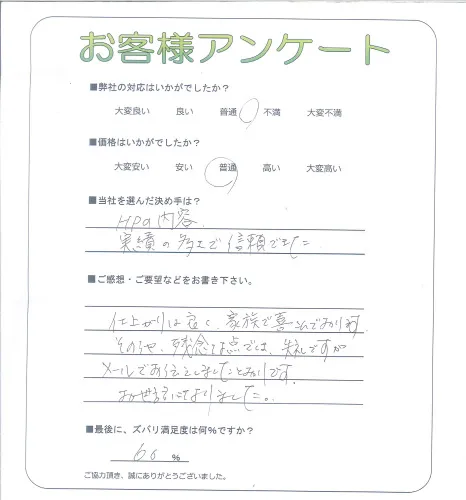 お客様アンケート
■弊社の対応はいかがでしたか？
大変良い 良い 普通 不満 大変不満
■価格はいかがでしたか？
大変安い 安い 普通 高い 大変高い
■当社を選んだ決め手は？
HPの内容.
実績の多さで信頼できた
■ご感想・ご要望などをお書き下さい。
仕上がりは良く、家族で喜んでおります.
残念な点では、失礼ですが
メールでお伝えしましたとおりです.
お世話になりました。
■最後に、ズバリ満足度は何%ですか？
60 %
ご協力頂き、誠にありがとうございました。